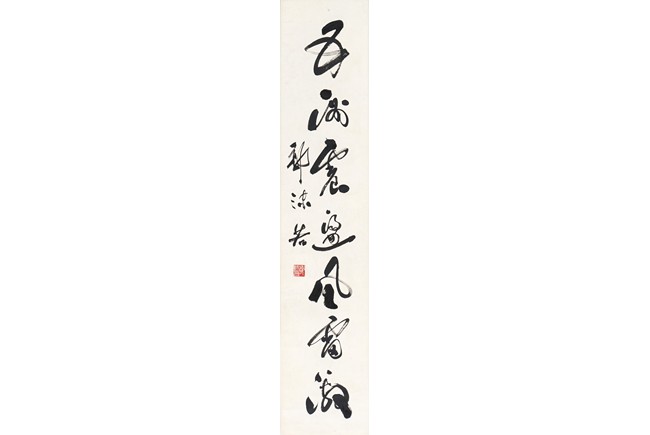 五洲震盪風雷激
郭沫若